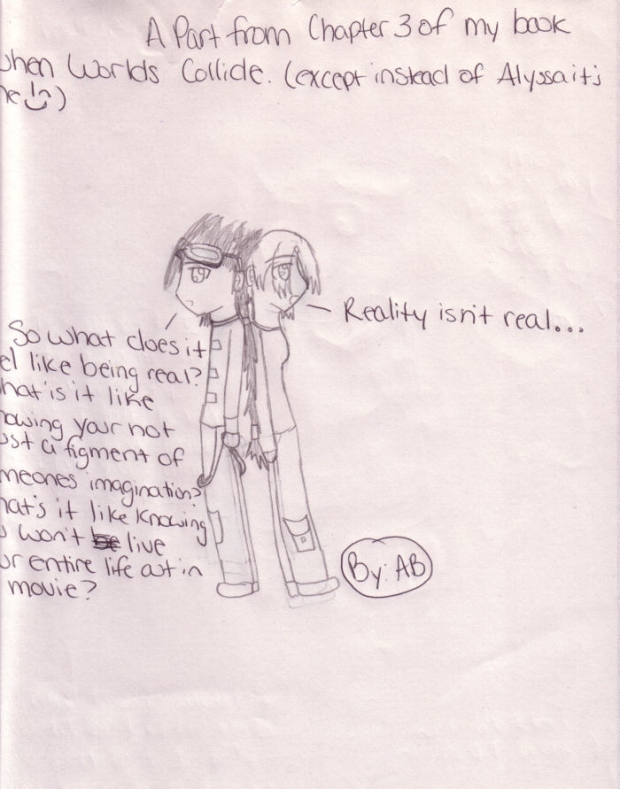 A Part from Chapter 3 of my book
when Worlds Collide. (except instead of Alyssa it's
me)
So what does it
el like being real?
hat's it like
nowing your not
ust a figment of
meones imagination?
hat's it like knowing
u won't live
ur entire life out in
movie?
Reality isn't real...
By: AB